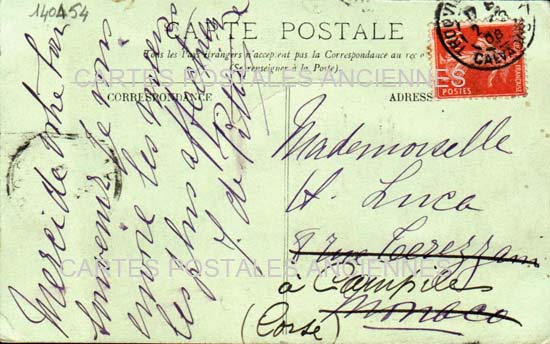 140454
CARTE POSTALE
Tous les Pays étrangers n'acceptent pas la Correspondance au recto
(Se renseigner à la Poste)
CARTES POSTALES ANCIENNES
CORRESPONDANCE
ADRESSE
Merci de votre bon
souvenir je vous
envoie les
les plus affectueux
J. de
Mademoiselle
H. Luca
8 rue Terrazzani
à Campile
Monaco
(Corse)
TROUVILLE
08
CALVADOS
POSTES
CARTES POSTALES ANCIENNES